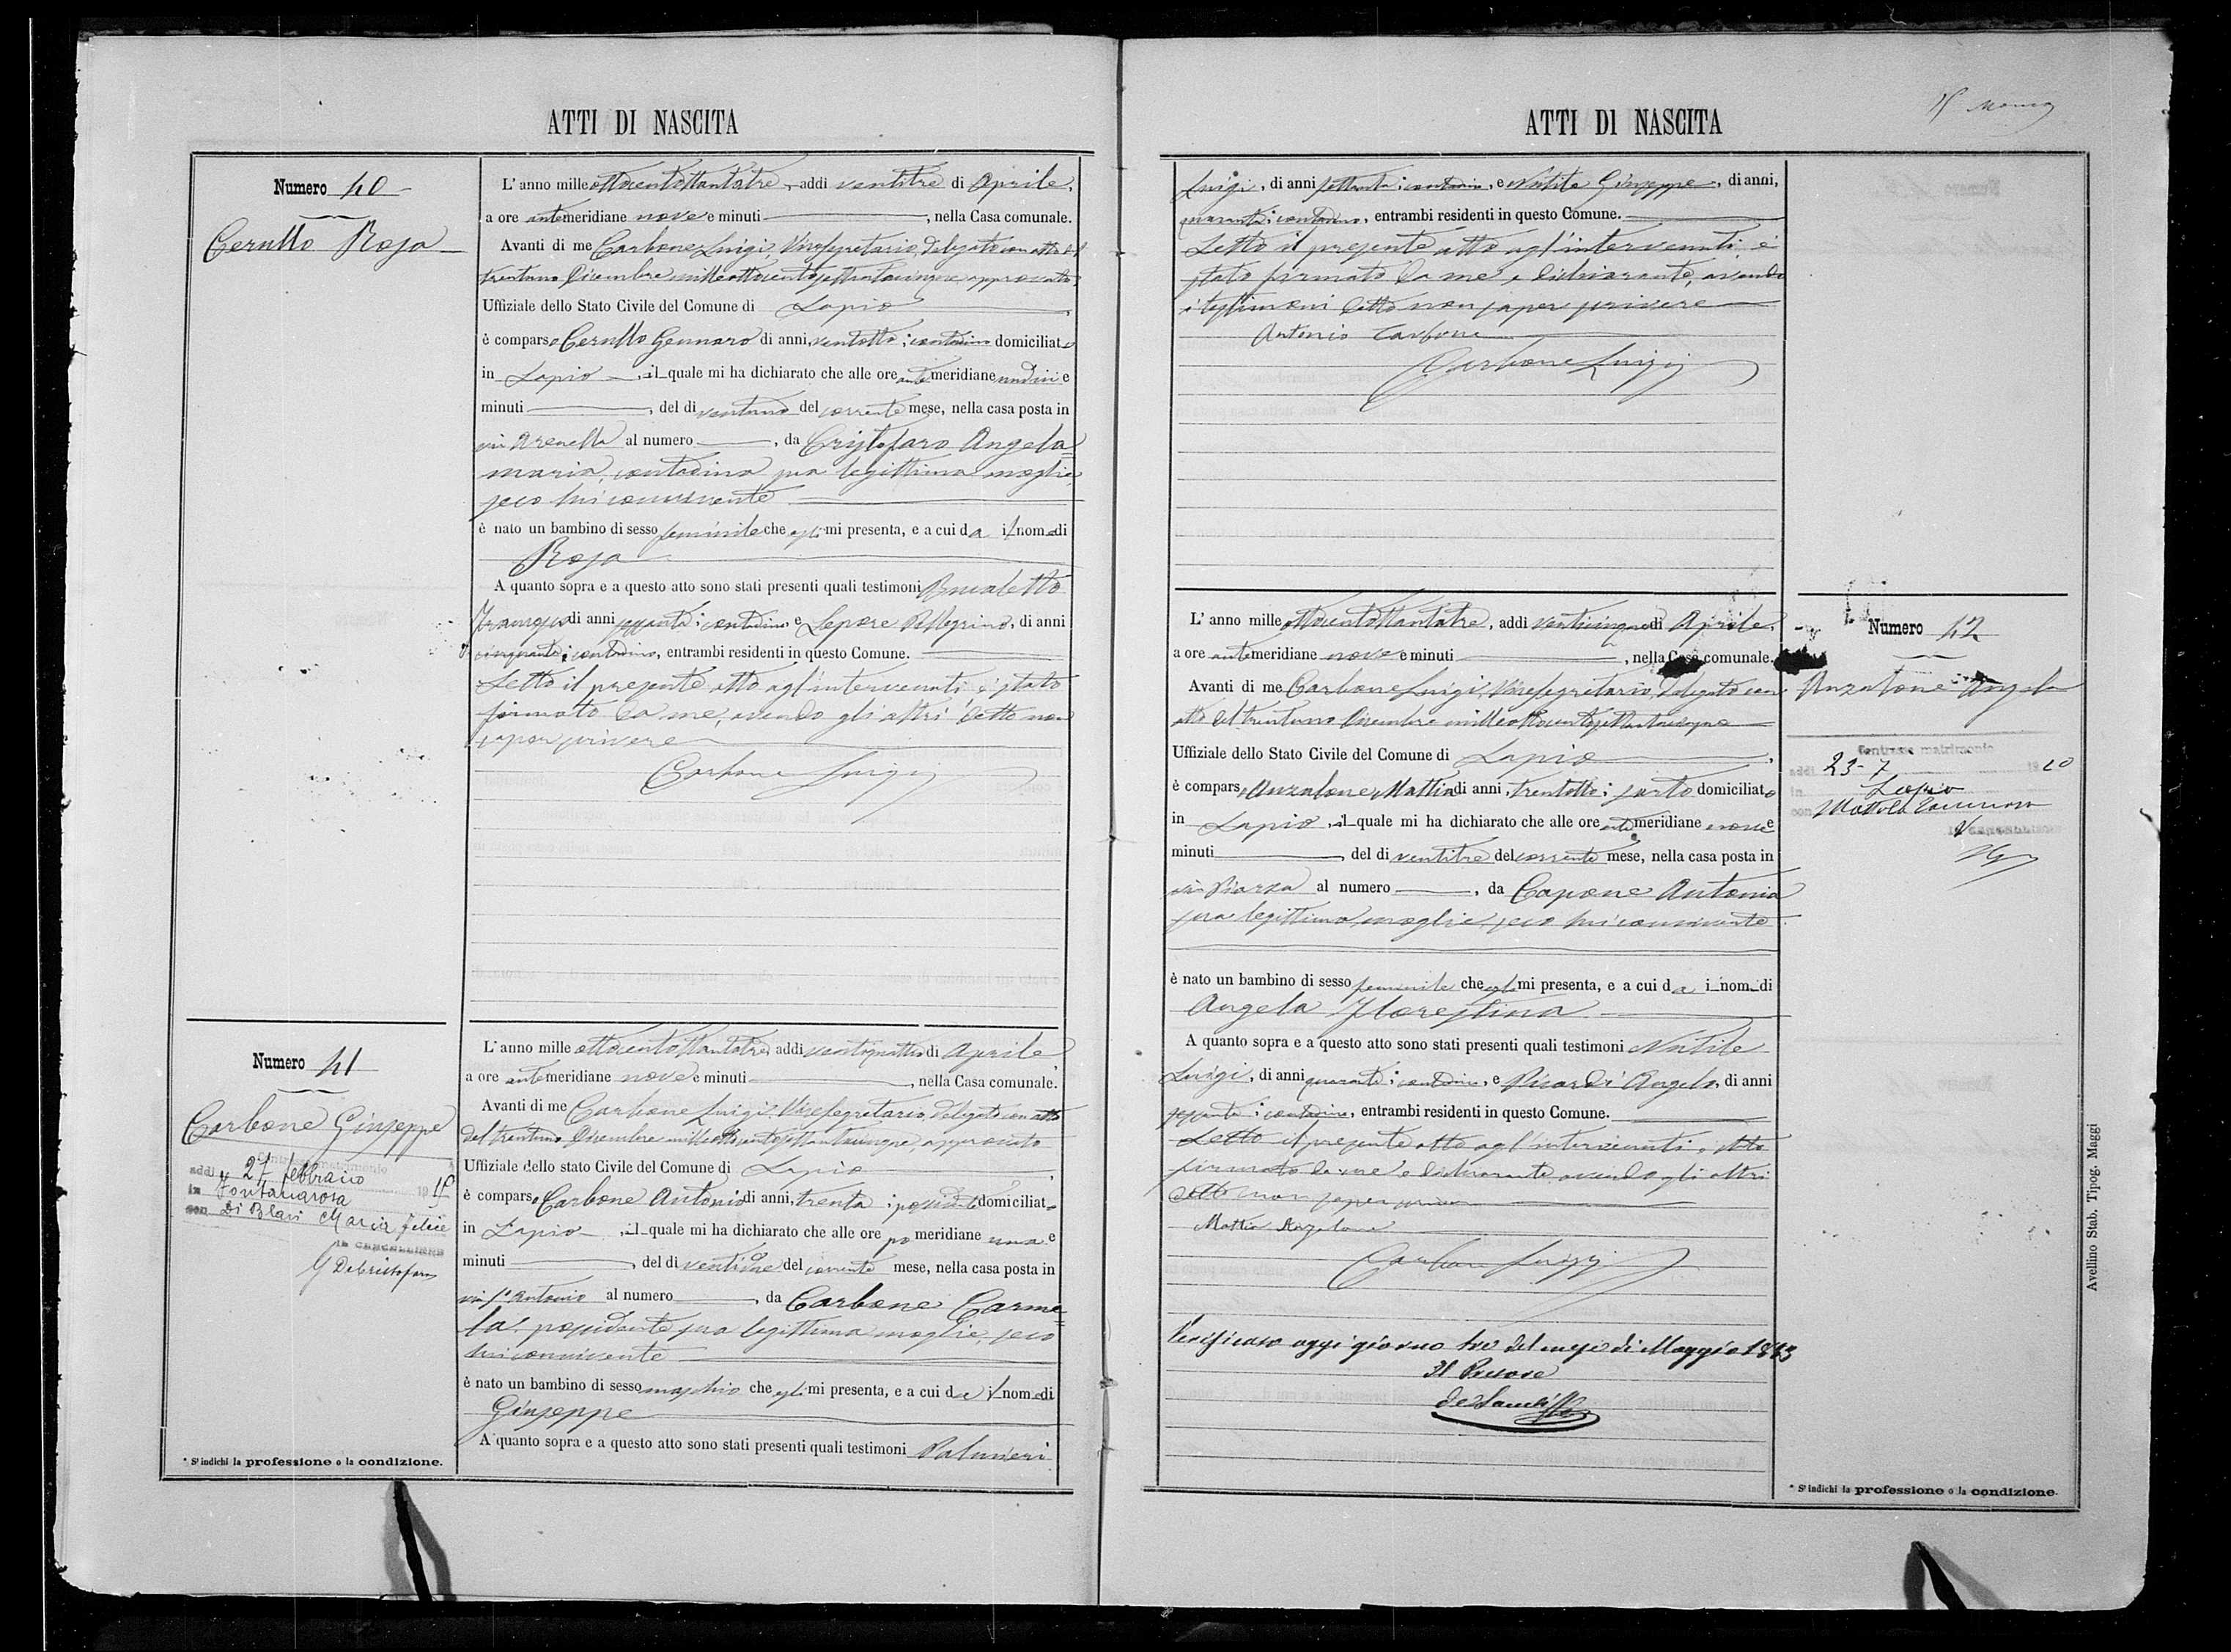 ATTI DI NASCITA
Numero 40
Cerullo Rosa
L'anno mille ottocentottantatre, addi ventitre di Aprile,
a ore antemeridiane nove e minuti, nella Casa comunale.
Avanti di me Carbone Luigi, Vicesegretario, delegato con atto del
trentuno Dicembre milleottocentosettantacinque, approvato,
Uffiziale dello Stato Civile del Comune di Lapio,
è comparso Cerullo Gennaro di anni, ventotto; contadino domiciliato
in Lapio, il quale mi ha dichiarato che alle ore antemeridiane undici e
minuti, del di ventuno del corrente mese, nella casa posta in
via Arenella al numero, da Cristofaro Angela=
maria, contadina, sua legittima moglie,
seco lui convivente
è nato un bambino di sesso feminile che egli mi presenta, e a cui da il nome di
Rosa
A quanto sopra e a questo atto sono stati presenti quali testimoni
di anni sessanta; contadino e Lepore Pellegrino, di anni
cinquanta; contadino, entrambi residenti in questo Comune.
Letto il presente atto agl'intervenuti è stato
firmato da me, avendo gli altri detto non
saper scrivere
Carbone Luigi
Numero 41
Carbone Giuseppe
Contrasse matrimonio
addì 27 febbraio 19
in Fontanarosa
con Di Blasi Maria Felice
IL CANCELLIERE
G DeCristofaro
L'anno mille ottocentottantatre, addi ventiquattro di Aprile,
a ore antemeridiane nove e minuti, nella Casa comunale.
Avanti di me Carbone Luigi, Vicesegretario, delegato con atto
del trentuno Dicembre milleottocentosettantacinque, approvato
Uffiziale dello stato Civile del Comune di Lapio,
è comparso Carbone Antonio di anni, trenta; possidente domiciliato
in Lapio, il quale mi ha dichiarato che alle ore pomeridiane una e
minuti, del di del corrente mese, nella casa posta in
via S. Antonio al numero, da Carbone Carme=
la, possidente, sua legittima moglie, seco
lui convivente
è nato un bambino di sesso maschio che egli mi presenta, e a cui da il nome di
Giuseppe
A quanto sopra e a questo atto sono stati presenti quali testimoni Palmieri
* Si indichi la professione o la condizione.
ATTI DI NASCITA
Luigi, di anni settanta; contadino, e Nutile Giuseppe, di anni,
quaranta; contadino, entrambi residenti in questo Comune.
Letto il presente atto agl'intervenuti, è
stato firmato da me, e dichiarante, avendo
i testimoni detto non saper scrivere
Antonio Carbone
Carbone Luigi
L'anno mille ottocentottantatre, addi venticinque di Aprile,
a ore antemeridiane nove e minuti, nella Casa comunale.
Avanti di me Carbone Luigi, Vicesegretario, delegato con
atto del trentuno Dicembre milleottocentosettantacinque
Uffiziale dello Stato Civile del Comune di Lapio,
è comparso Anzalone Mattia di anni, trentotto; sarto domiciliato
in Lapio, il quale mi ha dichiarato che alle ore antemeridiane nove e
minuti, del di ventitre del corrente mese, nella casa posta in
via Piazza al numero, da Capone Antonia
sua legittima moglie, seco lui convivente
è nato un bambino di sesso feminile che egli mi presenta, e a cui da i nom di
Angela Florestina
A quanto sopra e a questo atto sono stati presenti quali testimoni Nutile
Luigi, di anni quaranta; contadino, e Picardi Angelo, di anni
sessanta; contadino, entrambi residenti in questo Comune.
Letto il presente atto agl'intervenuti, è stato
firmato da me e dichiarante avendo gli altri
detto non saper scrivere
Mattia Anzalone
Carbone Luigi
Verificato oggi giorno tre del mese di Maggio 1883
Il Pretore
Numero 42
Anzalone Angela
Contrasse matrimonio
addì 23-7 1910
in Lapio
con
IL CANCELLIERE
* Si indichi la professione o la condizione.
Avellino Stab. Tipog. Maggi